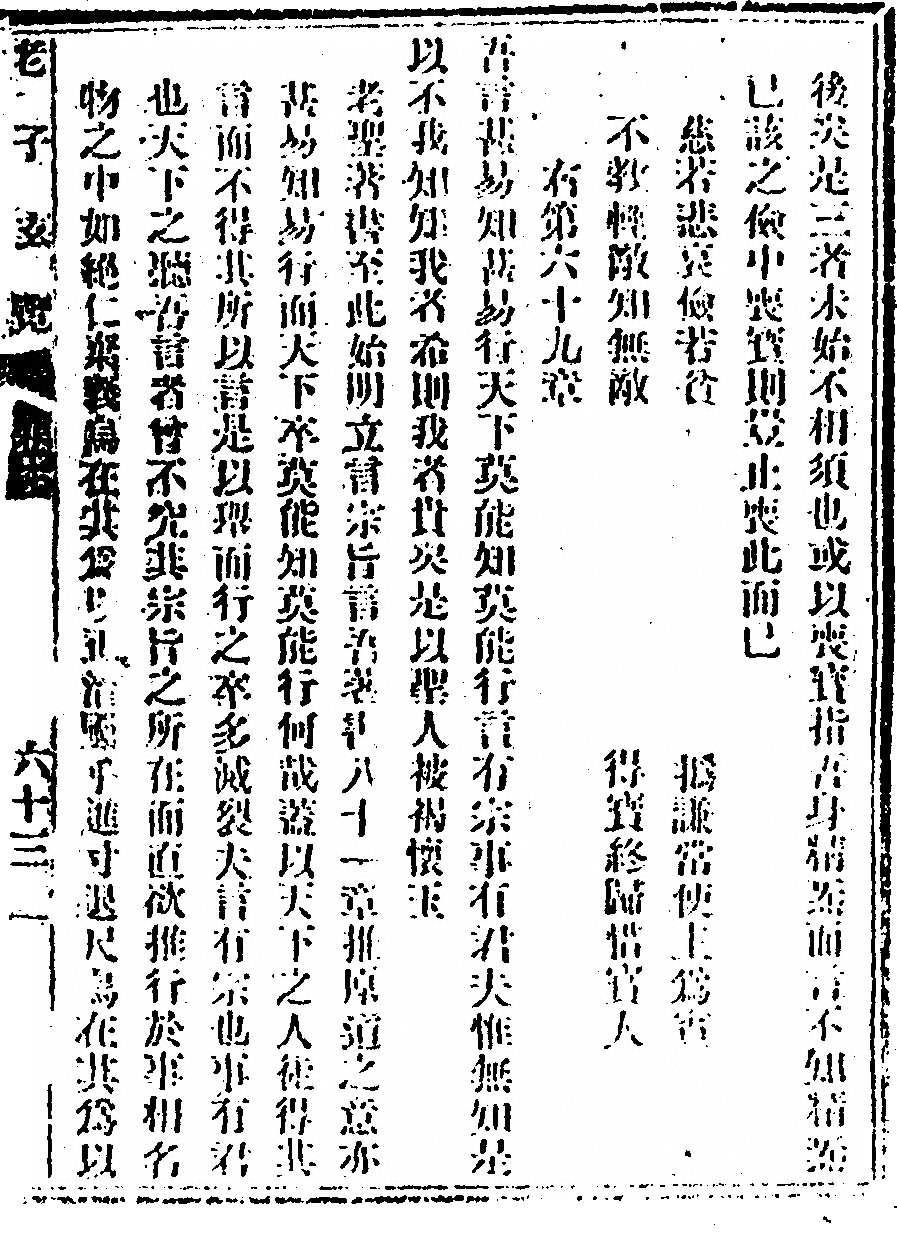 後矣是三者未始不相須也或以喪寶指吾身精氣而言不知精氣
已該之儉中喪寶則豈止喪此而已
慈若悲哀儉若貧 撝謙常使主為賓
不敢輕敵知無敵 得寶終歸惜寶人
右第六十九章
吾言甚易知甚易行天下莫能知莫能行言有宗事有君夫惟無知是
以不我知知我者希則我者貴矣是以聖人被褐懷玉
老聖著書至此始明立言宗旨言吾著書八十一章推原道之意亦
甚易知易行而天下卒莫能知莫能行何哉蓋以天下之人徒得其
言而不得其所以言是以理而行之卒多滅裂夫言有宗也事有君
也天下之聽吾言者曾不究其宗旨之所在而直欲推行於事相名
物之中如絕仁棄義烏在其為乎進寸退尺烏在其為以
老子玄覽 六十三